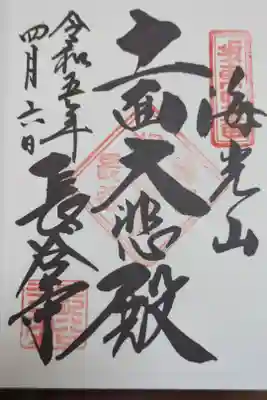 海光山
十一面大悲殿
長谷寺
令和五年
四月六日